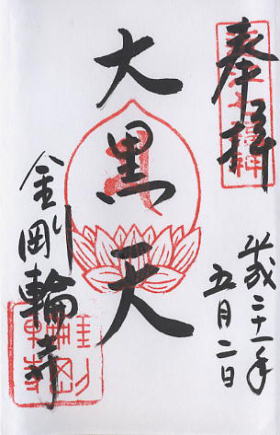 奉拝
平成二十一年
五月二日
大黒天
金剛輪寺